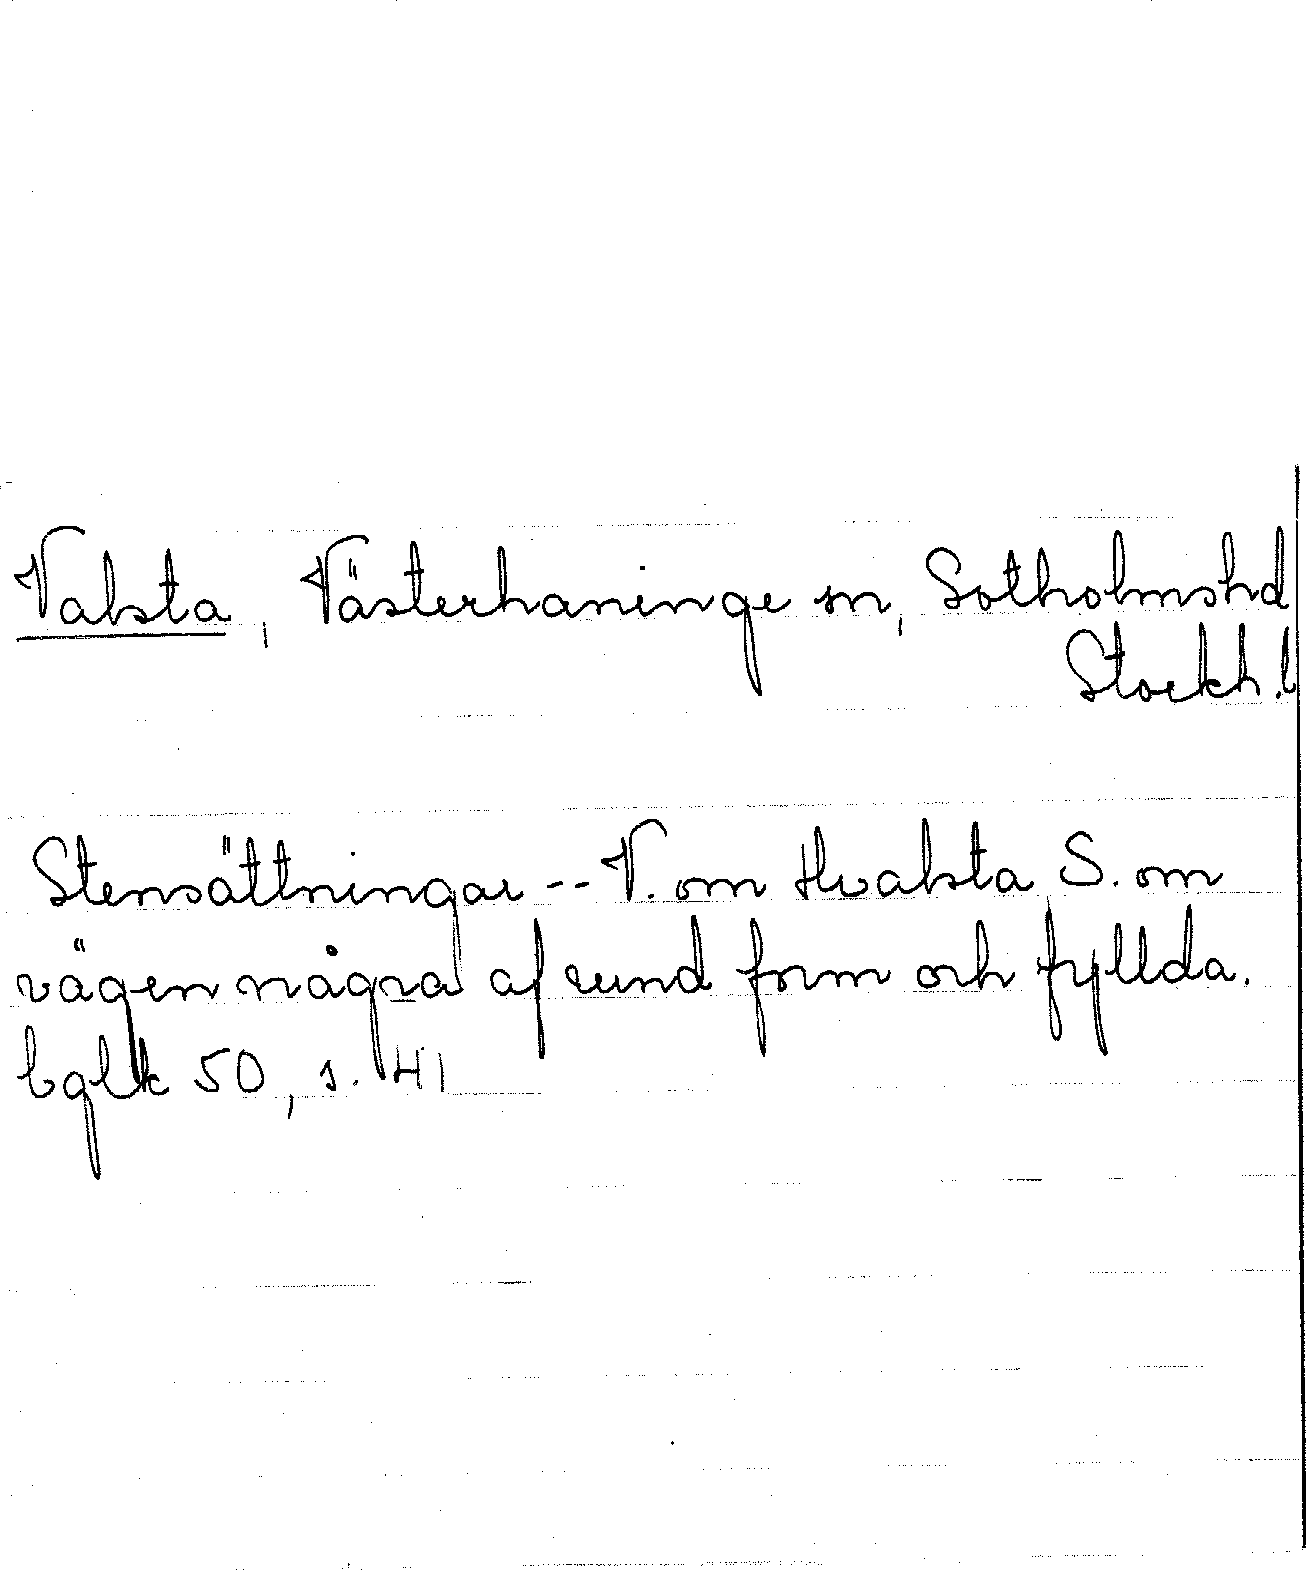 Valsta, Västerhaninge sn, Sotholmshd
Stockh. l
Stensättningar -- V. om Hvalsta S. om
vägen några af rund form och fyllda.
bglk 50, s. 41